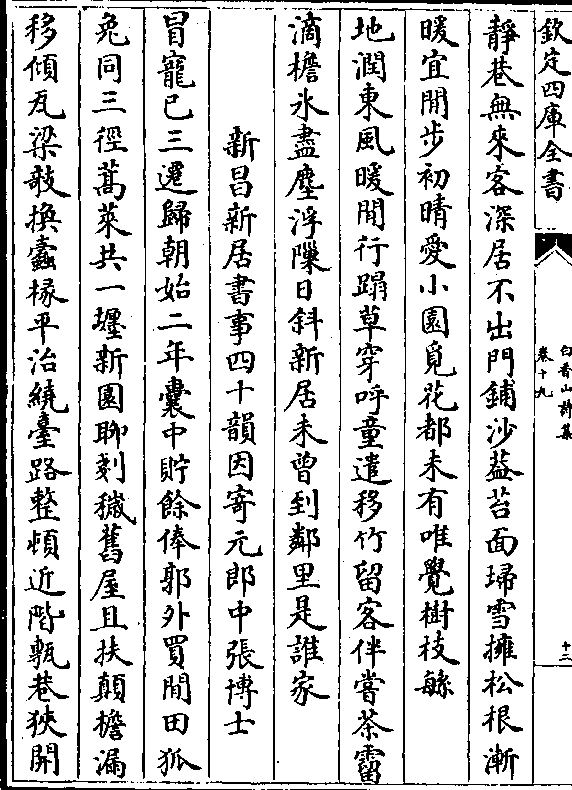 欽定四庫全書
白香山詩集
卷十九
十三
靜巷無來客深居不出門鋪沙葢苔面埽雪擁松根漸
暖宜閒步初晴愛小園覓花都未有唯覺樹枝緐
地潤東風暖閒行蹋草穿呼童遣移竹留客伴嘗茶霤
滴檐氷盡塵浮隟日斜新居未曾到鄰里是誰家
新昌新居書事四十韻因寄元郎中張博士
冒寵已三遷歸朝始二年囊中貯餘俸郭外買閒田狐
兔同三徑蒿萊共一㕓新園聊剗穢舊屋且扶顛檐漏
移傾瓦梁敧換蠹椽平治繞臺路整頓近階甎巷狹開